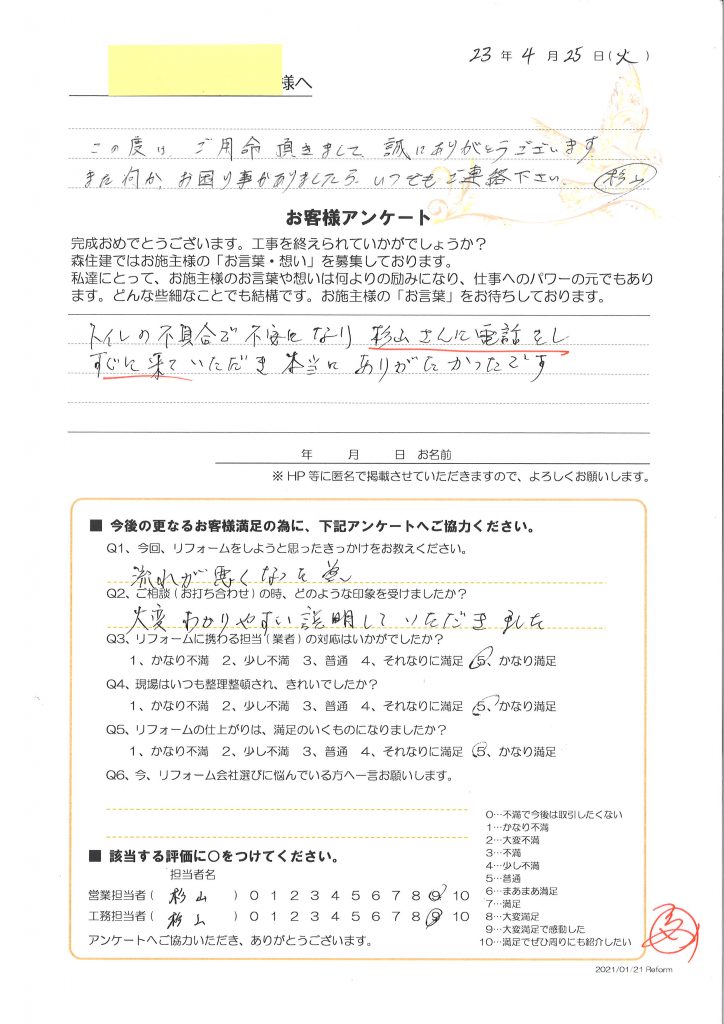 23年 4月 25日(火)
様へ
この度は、ご用命頂きまして、誠にありがとうございます。
また何か、お困り事がありましたら、いつでもご連絡下さい。 杉山
お客様アンケート
完成おめでとうございます。工事を終えられていかがでしょうか？
森住建ではお施主様の「お言葉・想い」を募集しております。
私達にとって、お施主様のお言葉や想いは何よりの励みになり、仕事へのパワーの元でもあり
ます。どんな些細なことでも結構です。お施主様の「お言葉」をお待ちしております。
トイレの不具合で不安になり 杉山さんに電話をし
すぐに来ていただき本当に ありがたかったです
年 月 日 お名前
※HP等に匿名で掲載させていただきますので、よろしくお願いします。
■ 今後の更なるお客様満足の為に、下記アンケートへご協力ください。
Q1、今回、リフォームをしようと思ったきっかけをお教えください。
流れが悪くなった
Q2、ご相談(お打ち合わせ)の時、どのような印象を受けましたか？
大変わかりやすい説明していただきました
Q3、リフォームに携わる担当(業者)の対応はいかがでしたか？
1、かなり不満 2、少し不満 3、普通 4、それなりに満足 5、かなり満足
Q4、現場はいつも整理整頓され、きれいでしたか？
1、かなり不満 2、少し不満 3、普通 4、それなりに満足 5、かなり満足
Q5、リフォームの仕上がりは、満足のいくものになりましたか？
1、かなり不満 2、少し不満 3、普通 4、それなりに満足 5、かなり満足
Q6、今、リフォーム会社選びに悩んでいる方へ一言お願いします。
■ 該当する評価に○をつけてください。
担当者名
営業担当者( 杉山 ) 0 1 2 3 4 5 6 7 8 9 10
工務担当者( 杉山 ) 0 1 2 3 4 5 6 7 8 9 10
アンケートへご協力いただき、ありがとうございます。
0…不満で今後は取引したくない
1…かなり不満
2…大変不満
3…不満
4…少し不満
5…普通
6…まあまあ満足
7…満足
8…大変満足
9…大変満足で感動した
10…満足でぜひ周りにも紹介したい
2021/01/21 Reform